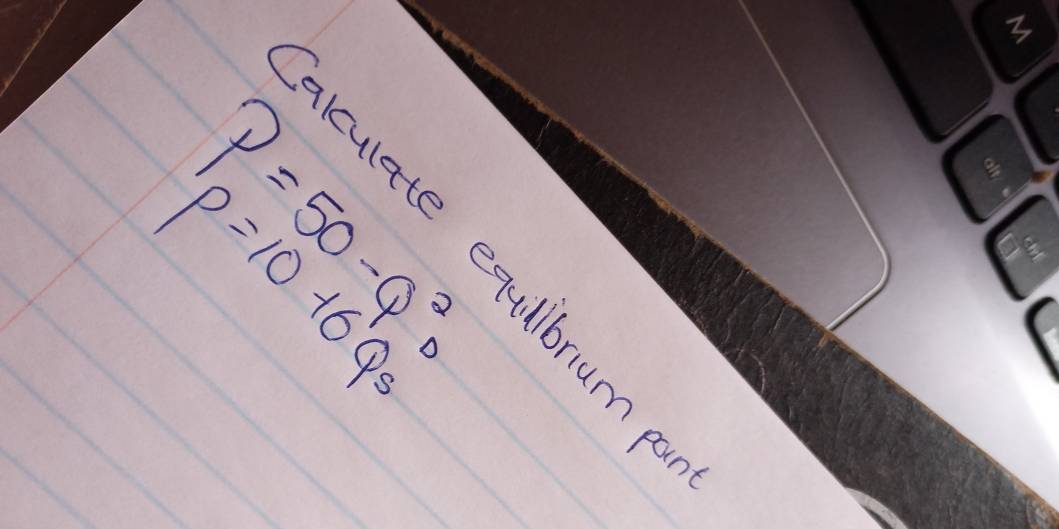 Calculate equilibrium point
P = 50 - Q²D
P = 10 + 6Qs
M
alt
ctrl